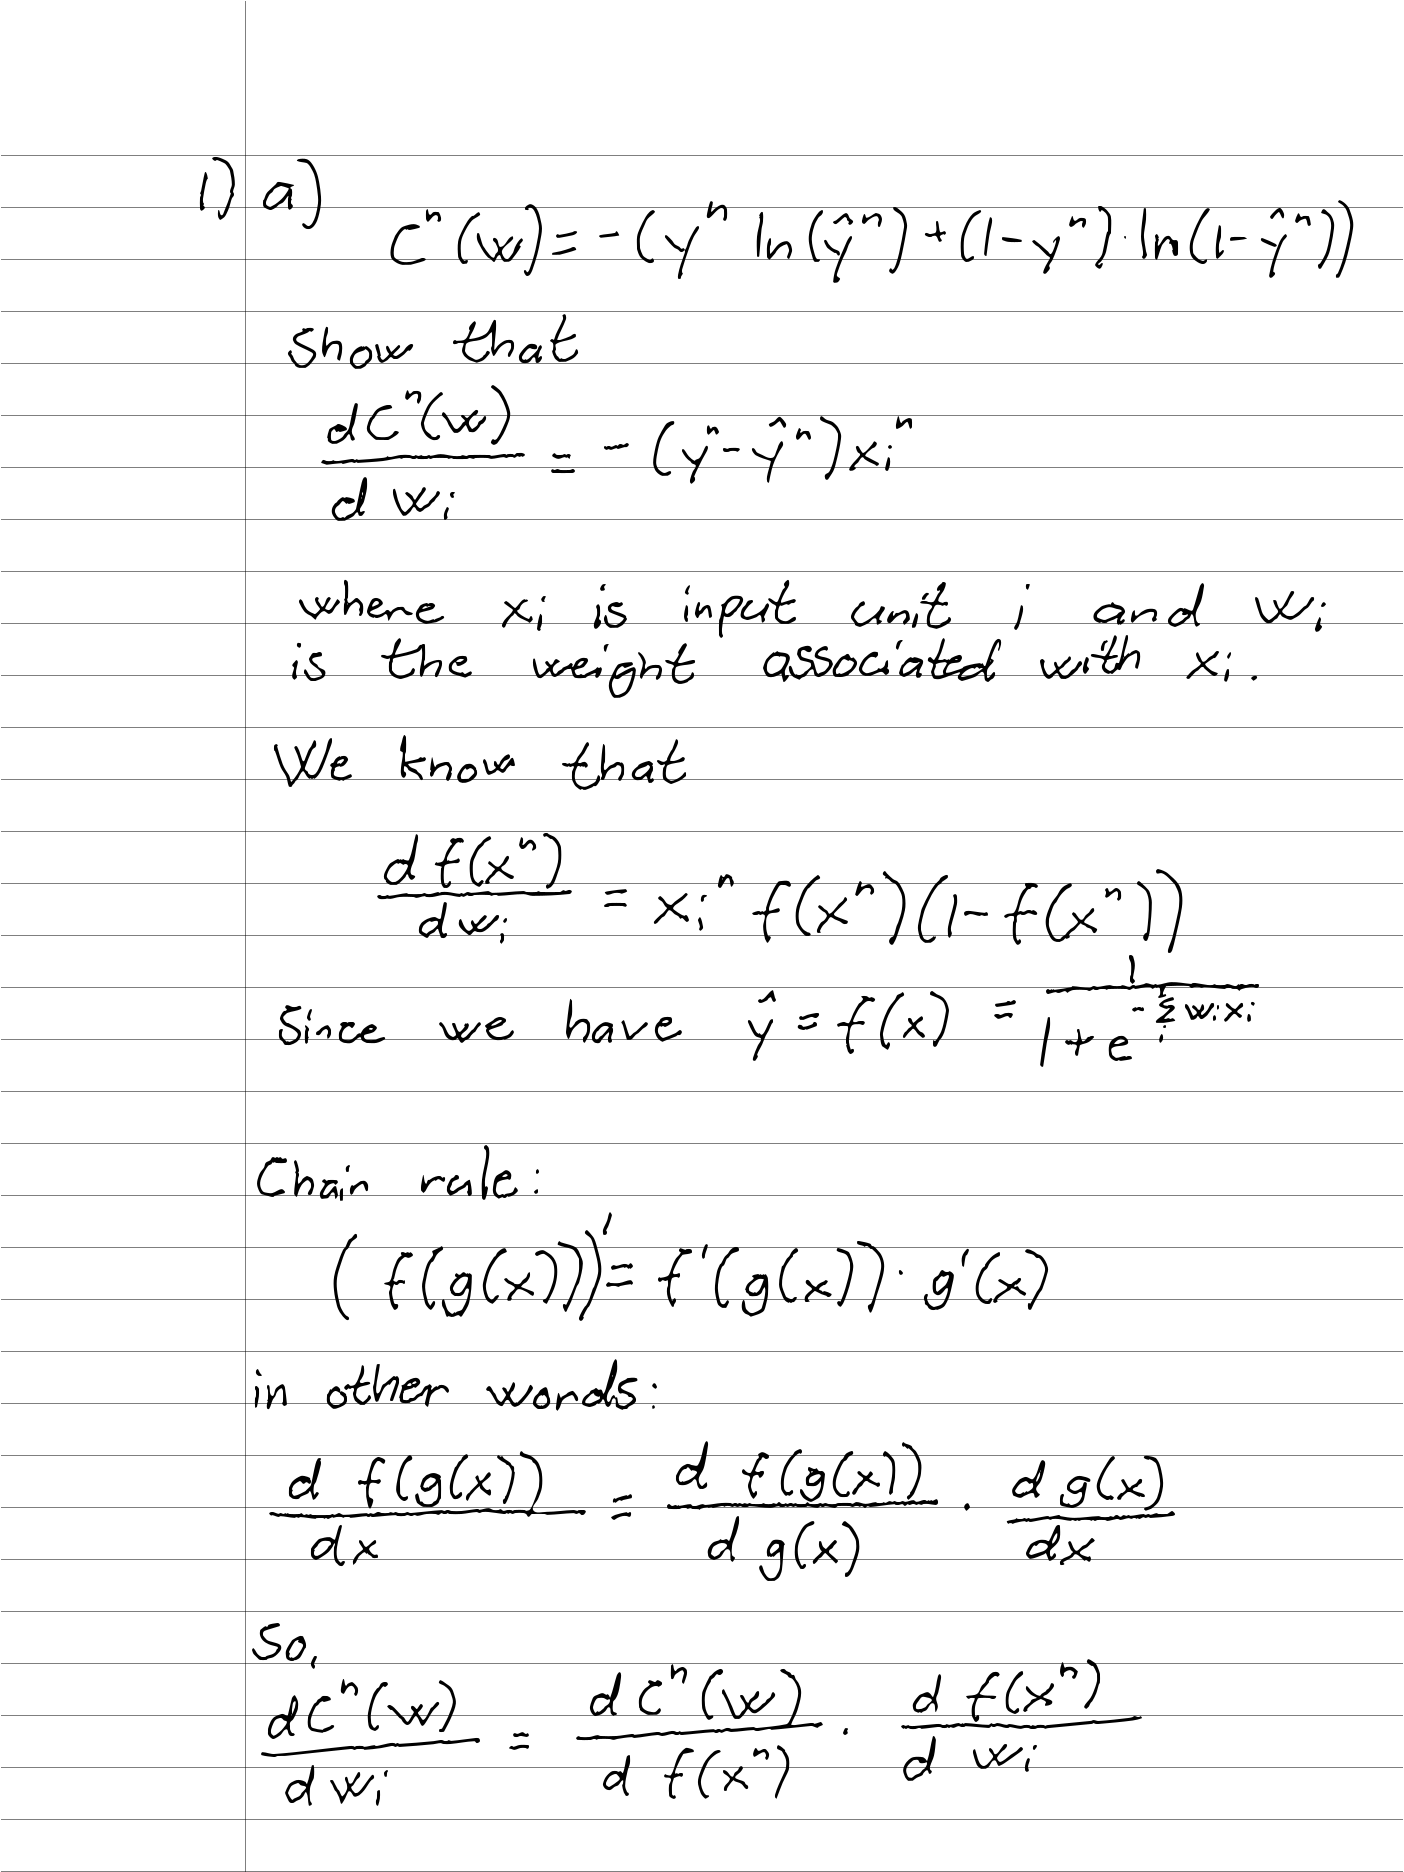 1) a)
Cⁿ(w) = -(yⁿ ln(ŷⁿ) + (1-yⁿ)·ln(1-ŷⁿ))
Show that
dCⁿ(w)/dwᵢ = -(yⁿ-ŷⁿ)xᵢⁿ
where xᵢ is input unit i and wᵢ
is the weight associated with xᵢ.
We know that
d f(xⁿ)/dwᵢ = xᵢⁿ f(xⁿ)(1-f(xⁿ))
Since we have ŷ = f(x) = 1/(1+e^(-Σᵢ wᵢxᵢ))
Chain rule:
(f(g(x)))' = f'(g(x))·g'(x)
in other words:
d f(g(x))/dx = d f(g(x))/d g(x) · d g(x)/dx
So,
dCⁿ(w)/dwᵢ = dCⁿ(w)/d f(xⁿ) · d f(xⁿ)/d wᵢ